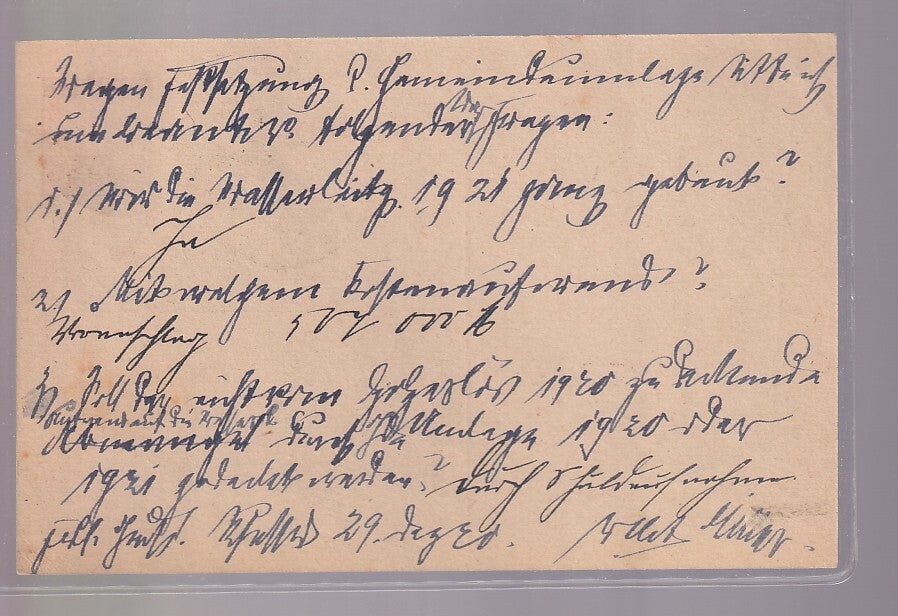 Wegen Festsetzung d. Gemeindeumlage bitte ich
um Beantw. folgender Fragen:
1.) Wird die Wasserleitg. 1921 ganz gebaut?
Ja
2) Mit welchem Kostenaufwand?
Voranschlag 507 000 M
3) Soll der nicht vom Holzerlös 1920 zu deckende
Aufwand auf die
durch die Umlage 1920 oder
1921 gedeckt werden? durch Schuldaufnahme
29. Dez 20.